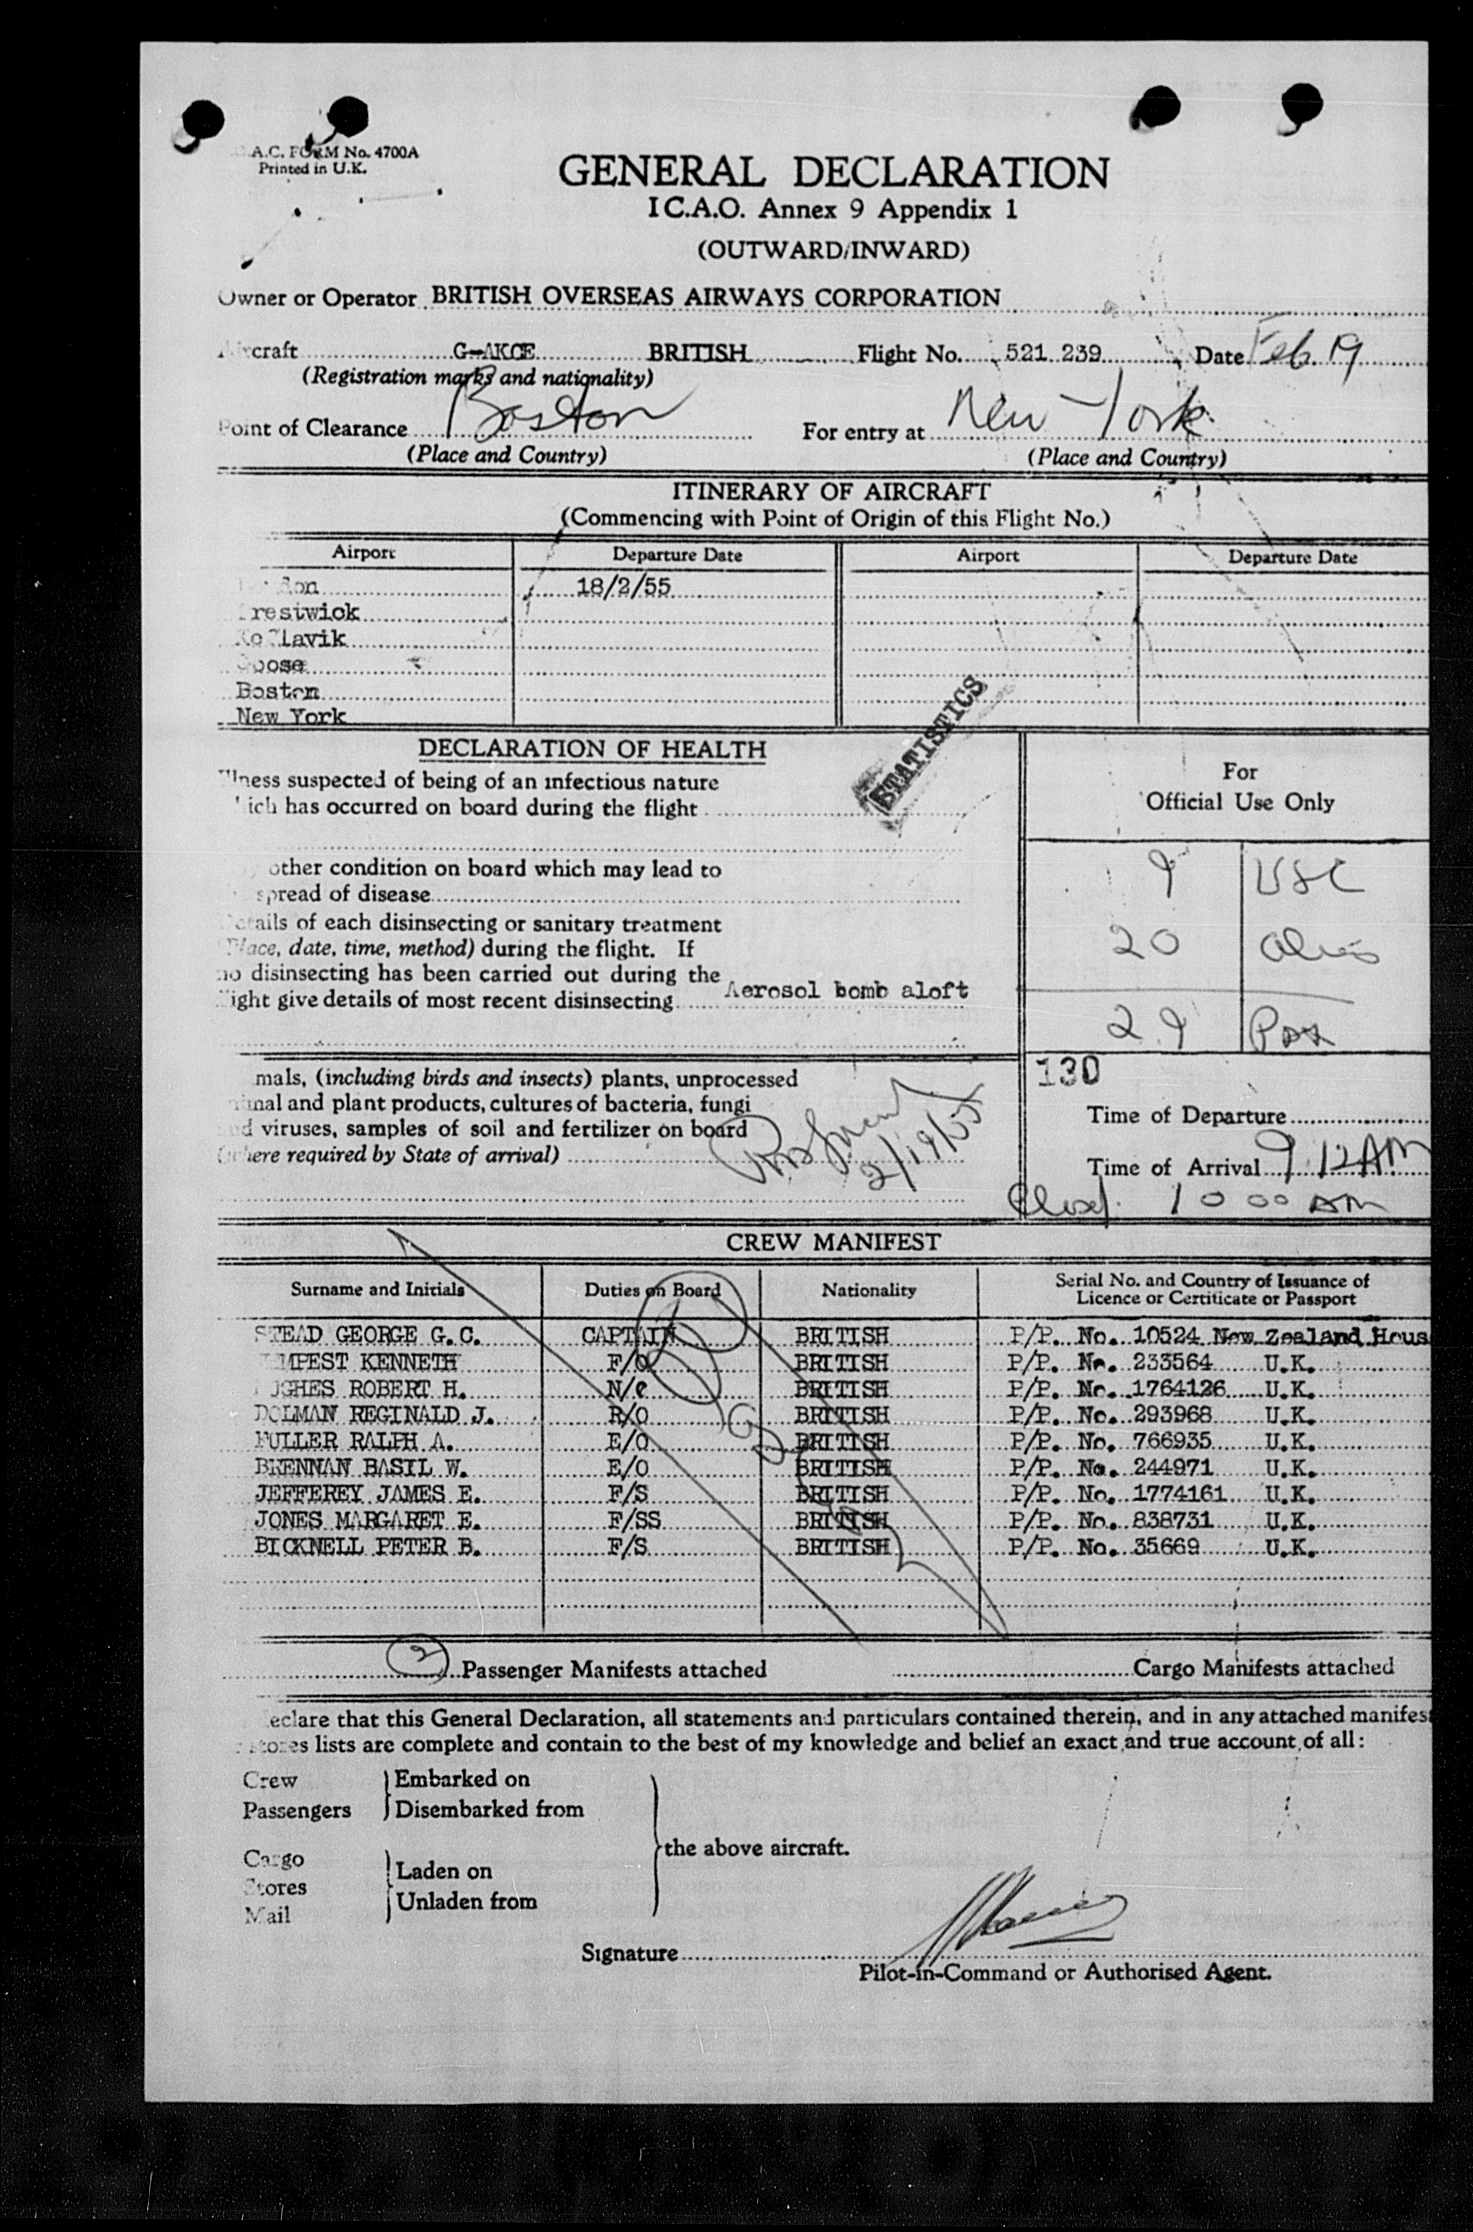 A.C. FORM No. 4700A
Printed in U.K.
GENERAL DECLARATION
I C.A.O. Annex 9 Appendix 1
(OUTWARD/INWARD)
Owner or Operator BRITISH OVERSEAS AIRWAYS CORPORATION
Aircraft G-AKCE BRITISH Flight No. 521 239 Date Feb 19
(Registration marks and nationality)
Point of Clearance Boston For entry at New York
(Place and Country) (Place and Country)
ITINERARY OF AIRCRAFT
(Commencing with Point of Origin of this Flight No.)
Airport Departure Date Airport Departure Date
18/2/55
restwick
lavik
oose
Boston
New York
STATISTICS
DECLARATION OF HEALTH
Illness suspected of being of an infectious nature
which has occurred on board during the flight
other condition on board which may lead to
spread of disease
Details of each disinsecting or sanitary treatment
(Place, date, time, method) during the flight. If
no disinsecting has been carried out during the
flight give details of most recent disinsecting Aerosol bomb aloft
For
Official Use Only
9 USC
20
29 Pax
130
mals, (including birds and insects) plants, unprocessed
animal and plant products, cultures of bacteria, fungi
and viruses, samples of soil and fertilizer on board
(where required by State of arrival)
2/19/55
Time of Departure
Time of Arrival 9 12 AM
Closed 10 00 AM
CREW MANIFEST
Surname and Initials Duties on Board Nationality Serial No. and Country of Issuance of
Licence or Certificate or Passport
STEAD GEORGE G.C. CAPTAIN BRITISH P/P. No. 10524 New Zealand Hous
MPEST KENNETH F/O BRITISH P/P. No. 233564 U.K.
UGHES ROBERT H. N/O BRITISH P/P. No. 1764126 U.K.
DOLMAN REGINALD J. R/O BRITISH P/P. No. 293968 U.K.
FULLER RALPH A. E/O BRITISH P/P. No. 766935 U.K.
BRENNAN BASIL W. E/O BRITISH P/P. No. 244971 U.K.
JEFFEREY JAMES E. F/S BRITISH P/P. No. 1774161 U.K.
JONES MARGARET E. F/SS BRITISH P/P. No. 838731 U.K.
BICKNELL PETER B. F/S BRITISH P/P. No. 35669 U.K.
2 Passenger Manifests attached Cargo Manifests attached
eclare that this General Declaration, all statements and particulars contained therein, and in any attached manifes
stores lists are complete and contain to the best of my knowledge and belief an exact and true account of all:
Crew Embarked on
Passengers Disembarked from
the above aircraft.
Cargo Laden on
Stores Unladen from
Mail
Signature
Pilot-in-Command or Authorised Agent.